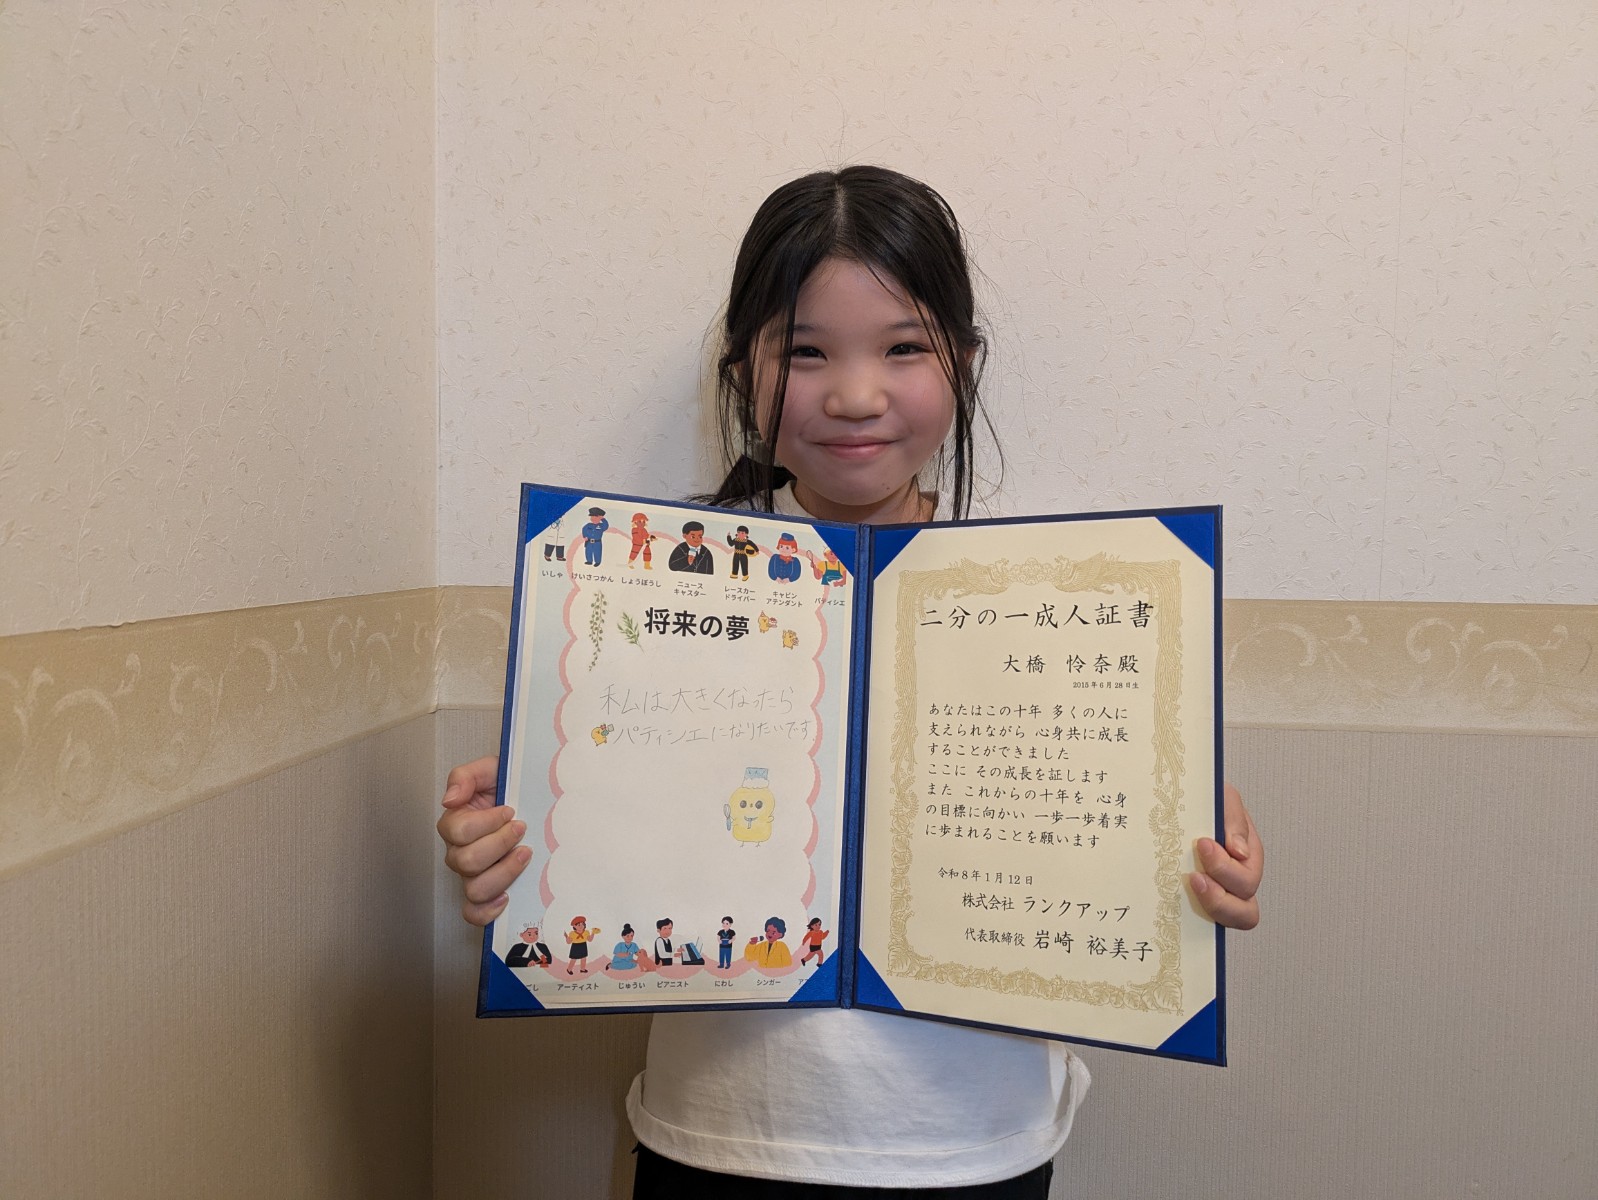 いしゃ
けいさつかん
しょうぼうし
ニュース
キャスター
レースカー
ドライバー
キャビン
アテンダント
パティシエ
将来の夢
私は大きくなったら
パティシエになりたいです。
アーティスト
じゅうい
ピアニスト
にわし
シンガー
二分の一成人証書
大橋 怜奈殿
2015年6月28日生
あなたはこの十年 多くの人に
支えられながら 心身共に成長
することができました
ここに その成長を証します
また これからの十年を 心身
の目標に向かい 一歩一歩着実
に歩まれることを願います
令和8年1月12日
株式会社 ランクアップ
代表取締役 岩崎 裕美子